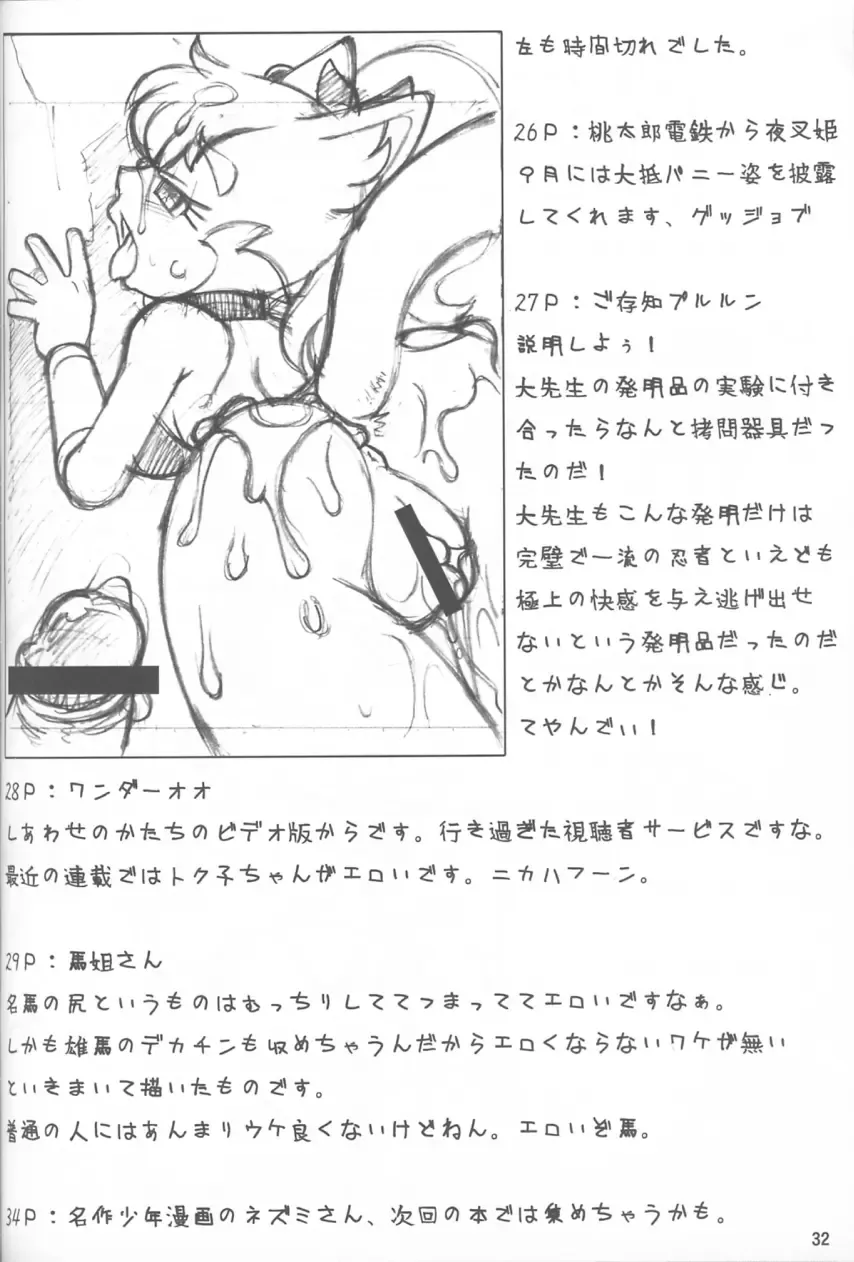 左も時間切れでした。
26P：桃太郎電鉄から夜叉姫
9月には大抵バニー姿を披露
してくれます、グッジョブ
27P：ご存知プルルン
説明しよぅ！
大先生の発明品の実験に付き
合ったらなんと拷問器具だっ
たのだ！
大先生もこんな発明だけは
完璧で一流の忍者といえども
極上の快感を与え逃げ出せ
ないという発明品だったのだ
とかなんとかそんな感じ。
てやんでぃ！
28P：ワンダーオオ
しあわせのかたちのビデオ版からです。行き過ぎた視聴者サービスですな。
最近の連載ではトク子ちゃんがエロいです。ニカハフーン。
29P：馬姐さん
名馬の尻というものはむっちりしててつまっててエロいですなぁ。
しかも雄馬のデカチンも収めちゃうんだからエロくならないワケが無い
といきまいて描いたものです。
普通の人にはあんまりウケ良くないけどねん。エロいぞ馬。
34P：名作少年漫画のネズミさん、次回の本では集めちゃうかも。
32